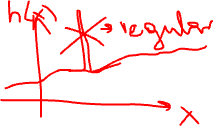 h(x)
→ regular
x